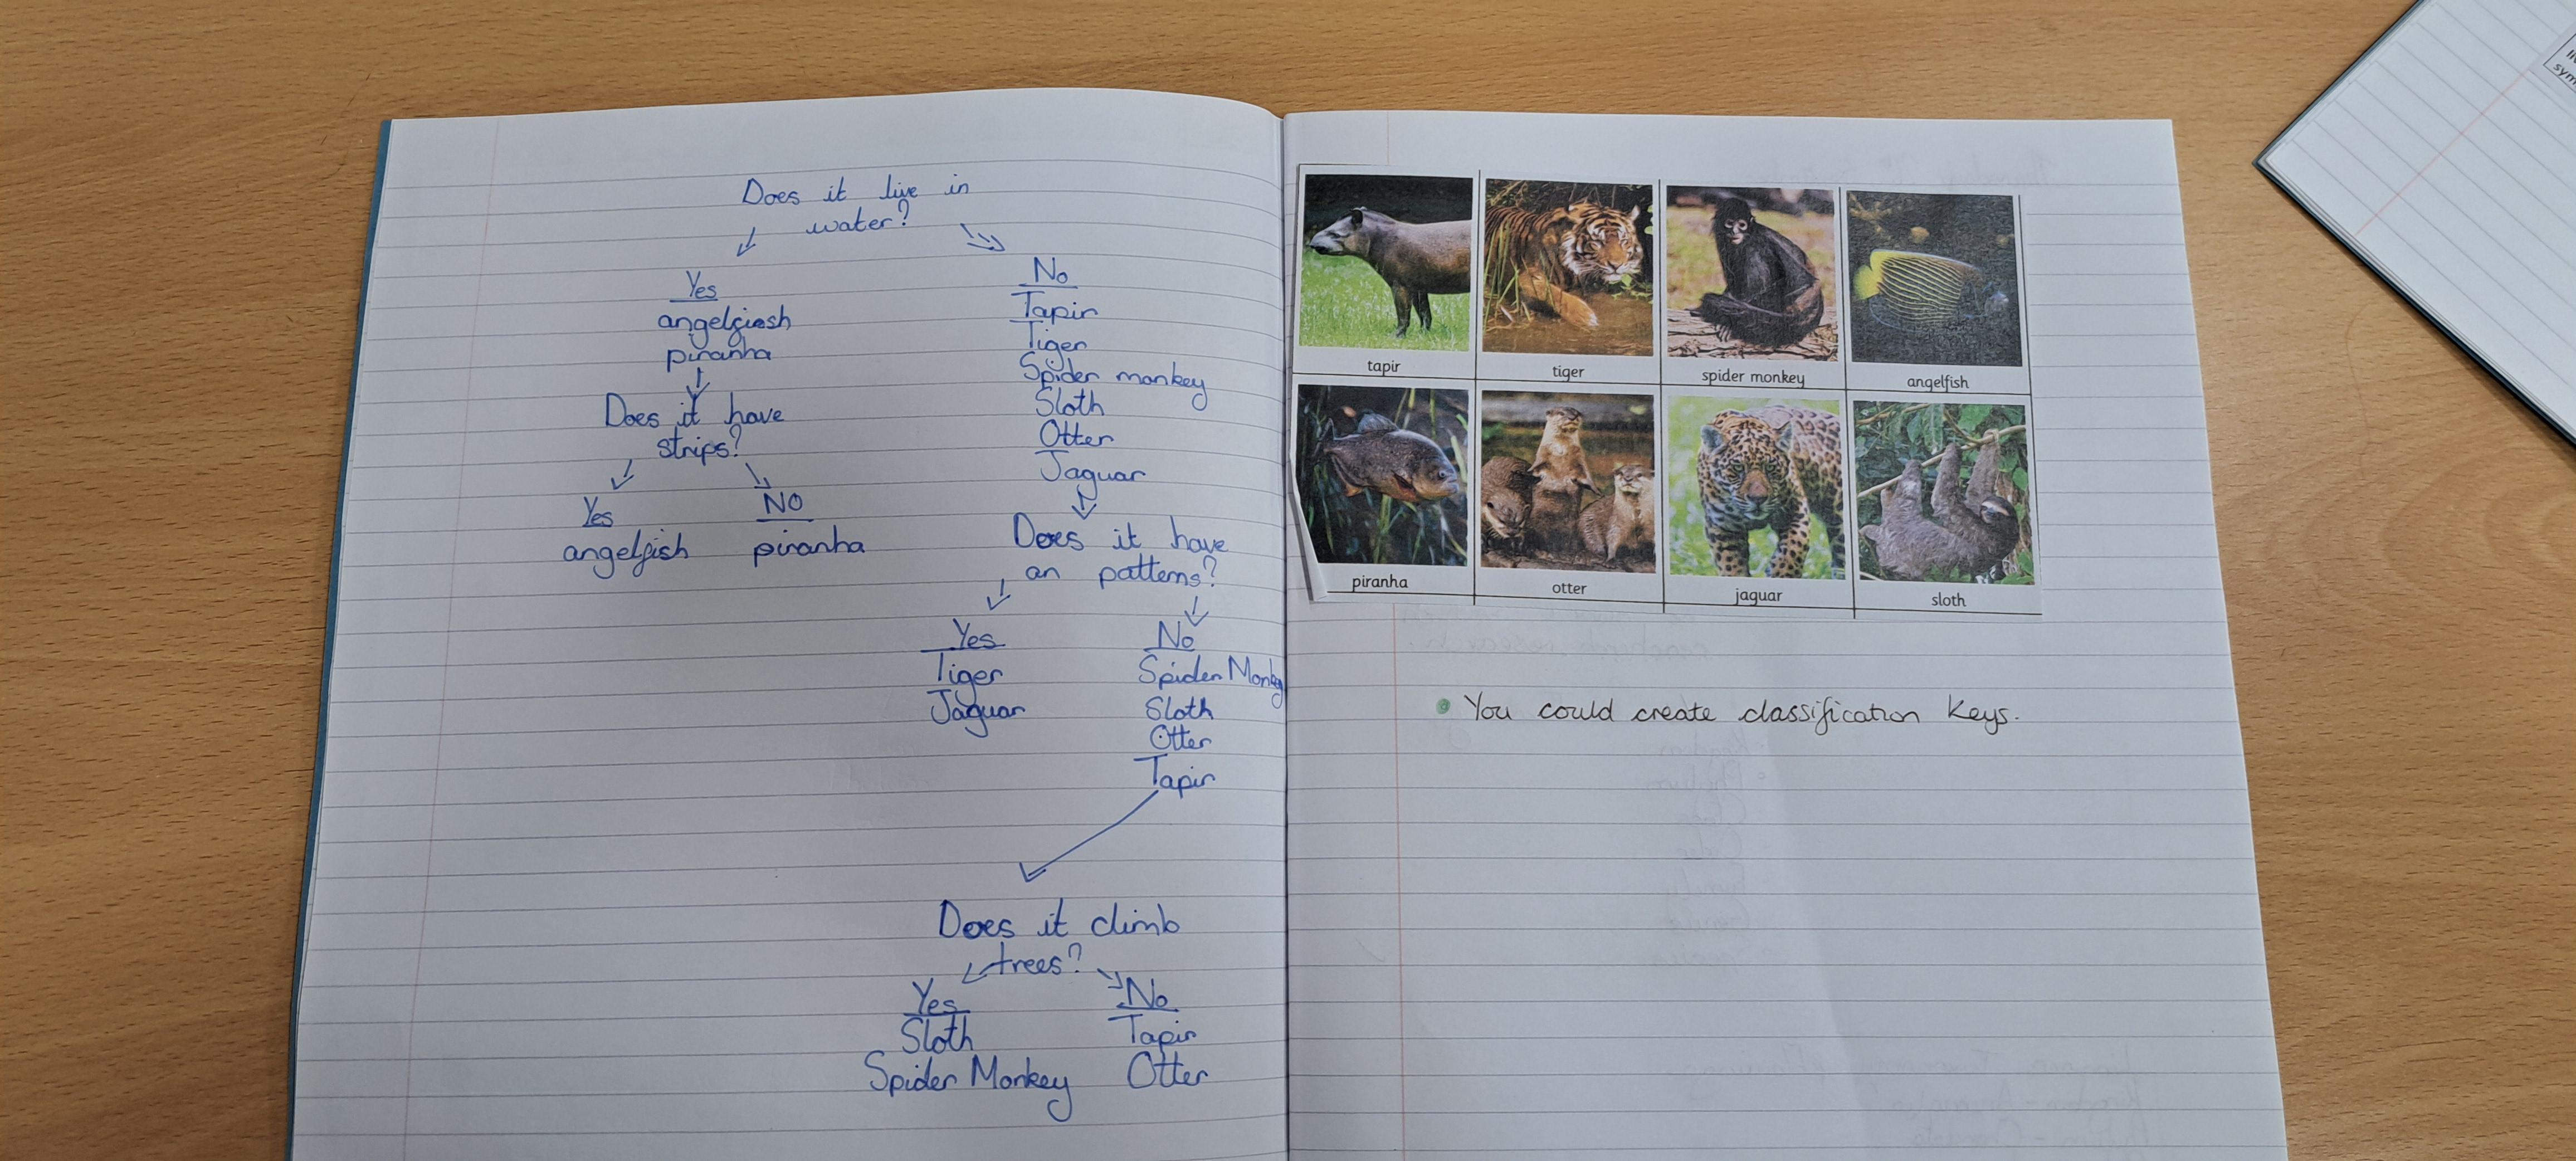 Does it live in
water?
Yes
angelfiesh
piranha
Does it have
strips?
Yes
angelfish
NO
piranha
No
Tapir
Tiger
Spider monkey
Sloth
Otter
Jaguar
Does it have
an patterns?
Yes
Tiger
Jaguar
No
Spider Monkey
Sloth
Otter
Tapir
Does it climb
trees?
Yes
Sloth
Spider Monkey
No
Tapir
Otter
tapir
tiger
spider monkey
angelfish
piranha
otter
jaguar
sloth
You could create classification keys.